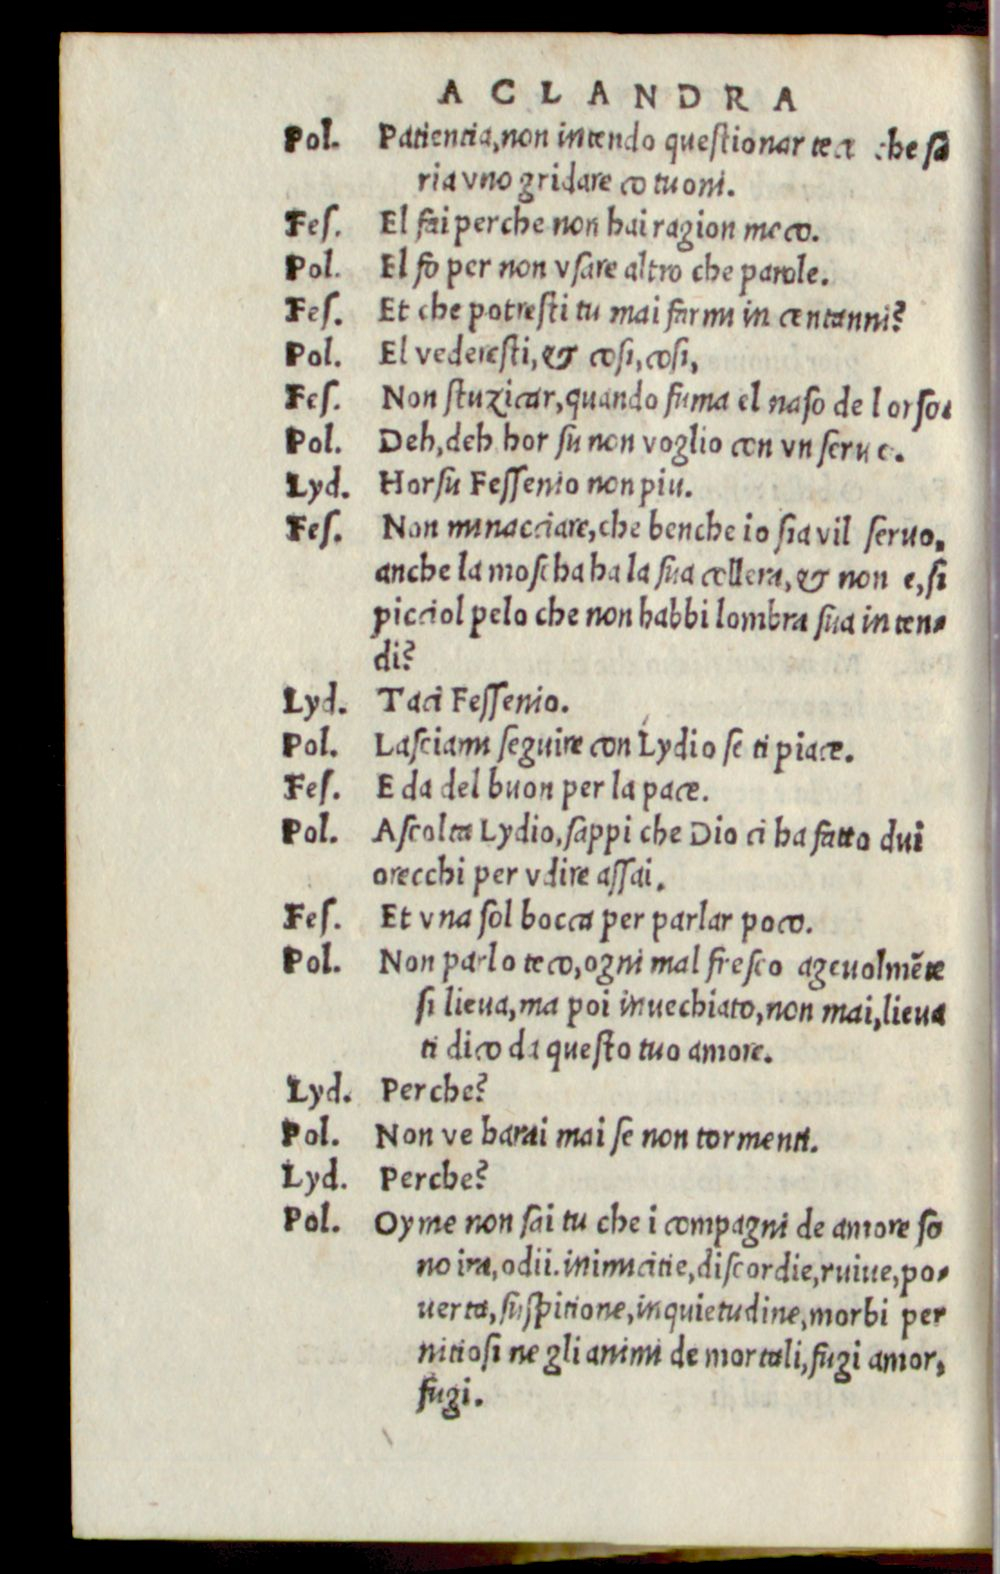 A C L A N D R A
Pol. Patientia, non intendo questionar teco che sa
ria vno gridare co tuoni.
Fes. El fai perche non hai ragion meco.
Pol. El fo per non vsare altro che parole.
Fes. Et che potresti tu mai farmi in centanni?
Pol. El vederesti, & cosi, cosi,
Fes. Non stuzicar, quando fuma el naso de l orso.
Pol. Deh, deh hor su non voglio con vn seruo.
Lyd. Horsu Fessenio non piu.
Fes. Non minacciare, che benche io sia vil seruo,
anche la moscha ha la sua collera, & non e, si
picciol pelo che non habbi lombra sua inten-
di?
Lyd. Taci Fessenio.
Pol. Lasciami seguire con Lydio se ti piace.
Fes. E da del buon per la pace.
Pol. Ascolta Lydio, sappi che Dio ci ha fatto dui
orecchi per vdire assai.
Fes. Et vna sol bocca per parlar poco.
Pol. Non parlo teco, ogni mal fresco ageuolmẽte
si lieua, ma poi inuechiato, non mai, lieua
ti dico da questo tuo amore.
Lyd. Perche?
Pol. Non ve harai mai se non tormenti.
Lyd. Perche?
Pol. Oyme non sai tu che i compagni de amore so
no ira, odii. inimicitie, discordie, ruiue, po-
uerta, suspitione, inquietudine, morbi per
nitiosi ne gli animi de mortali, fugi amor,
fugi.